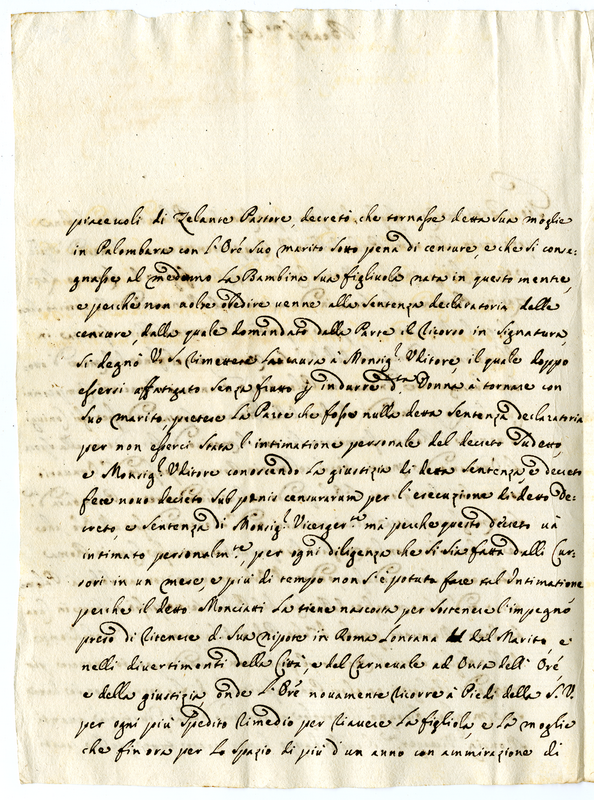 piaceuoli di Zelante Pastore, decretò che tornasse detta Sua moglie
in Palombara con l'Orẽ Suo marito sotto pena di censure, e che si conse=
gnasse al medemo La Bambina Sua figliuola nata in questo mentre,
e perche non uolse obedire uenne alla Sentenza declaratoria delle
censure, dalla quale domandato dalla Parte il Ricorso in Signatura,
Si degnò V. S. Rimettere La causa à Monsig.r Uditore, il quale doppo
essersi affatigato Senza frutto p indurre d.ta Donna à tornare con
Suo marito pretese La Parte che fosse nulla detta Sentenza declaratoria
per non esserci Stata l'intimatione personale del decreto Sudetto,
e Monsig.r Uditore conoscendo La giustizia di detta Sentenza e decreto
fece nouo decreto Sub penis censurarum per l'esecuzione di detto de=
creto, e Sentenza di Monsig.r Vicegerte mà perche questo decreto uà
intimato personalmte, per ogni diligenza che Si Sia fatta dalli Cur=
sori in un mese, e più di tempo non S'è potuta fare tal Intimatione
perche il detto Monciatti La tiene nascosta per Sostenere l'impegno
preso di Ritenere d. Sua Nipote in Roma Lontana dal Marito, e
nelli diuertimenti della Città e del Carneuale ad Onta dell' Orẽ
e della giustizia onde L'Orẽ nouamente Ricorre à Piedi della S. V.
per ogni più Spedito Rimedio per Riauere La figliola e La moglie
che fin ora per Lo Spazio di più d'un anno con ammirazione di